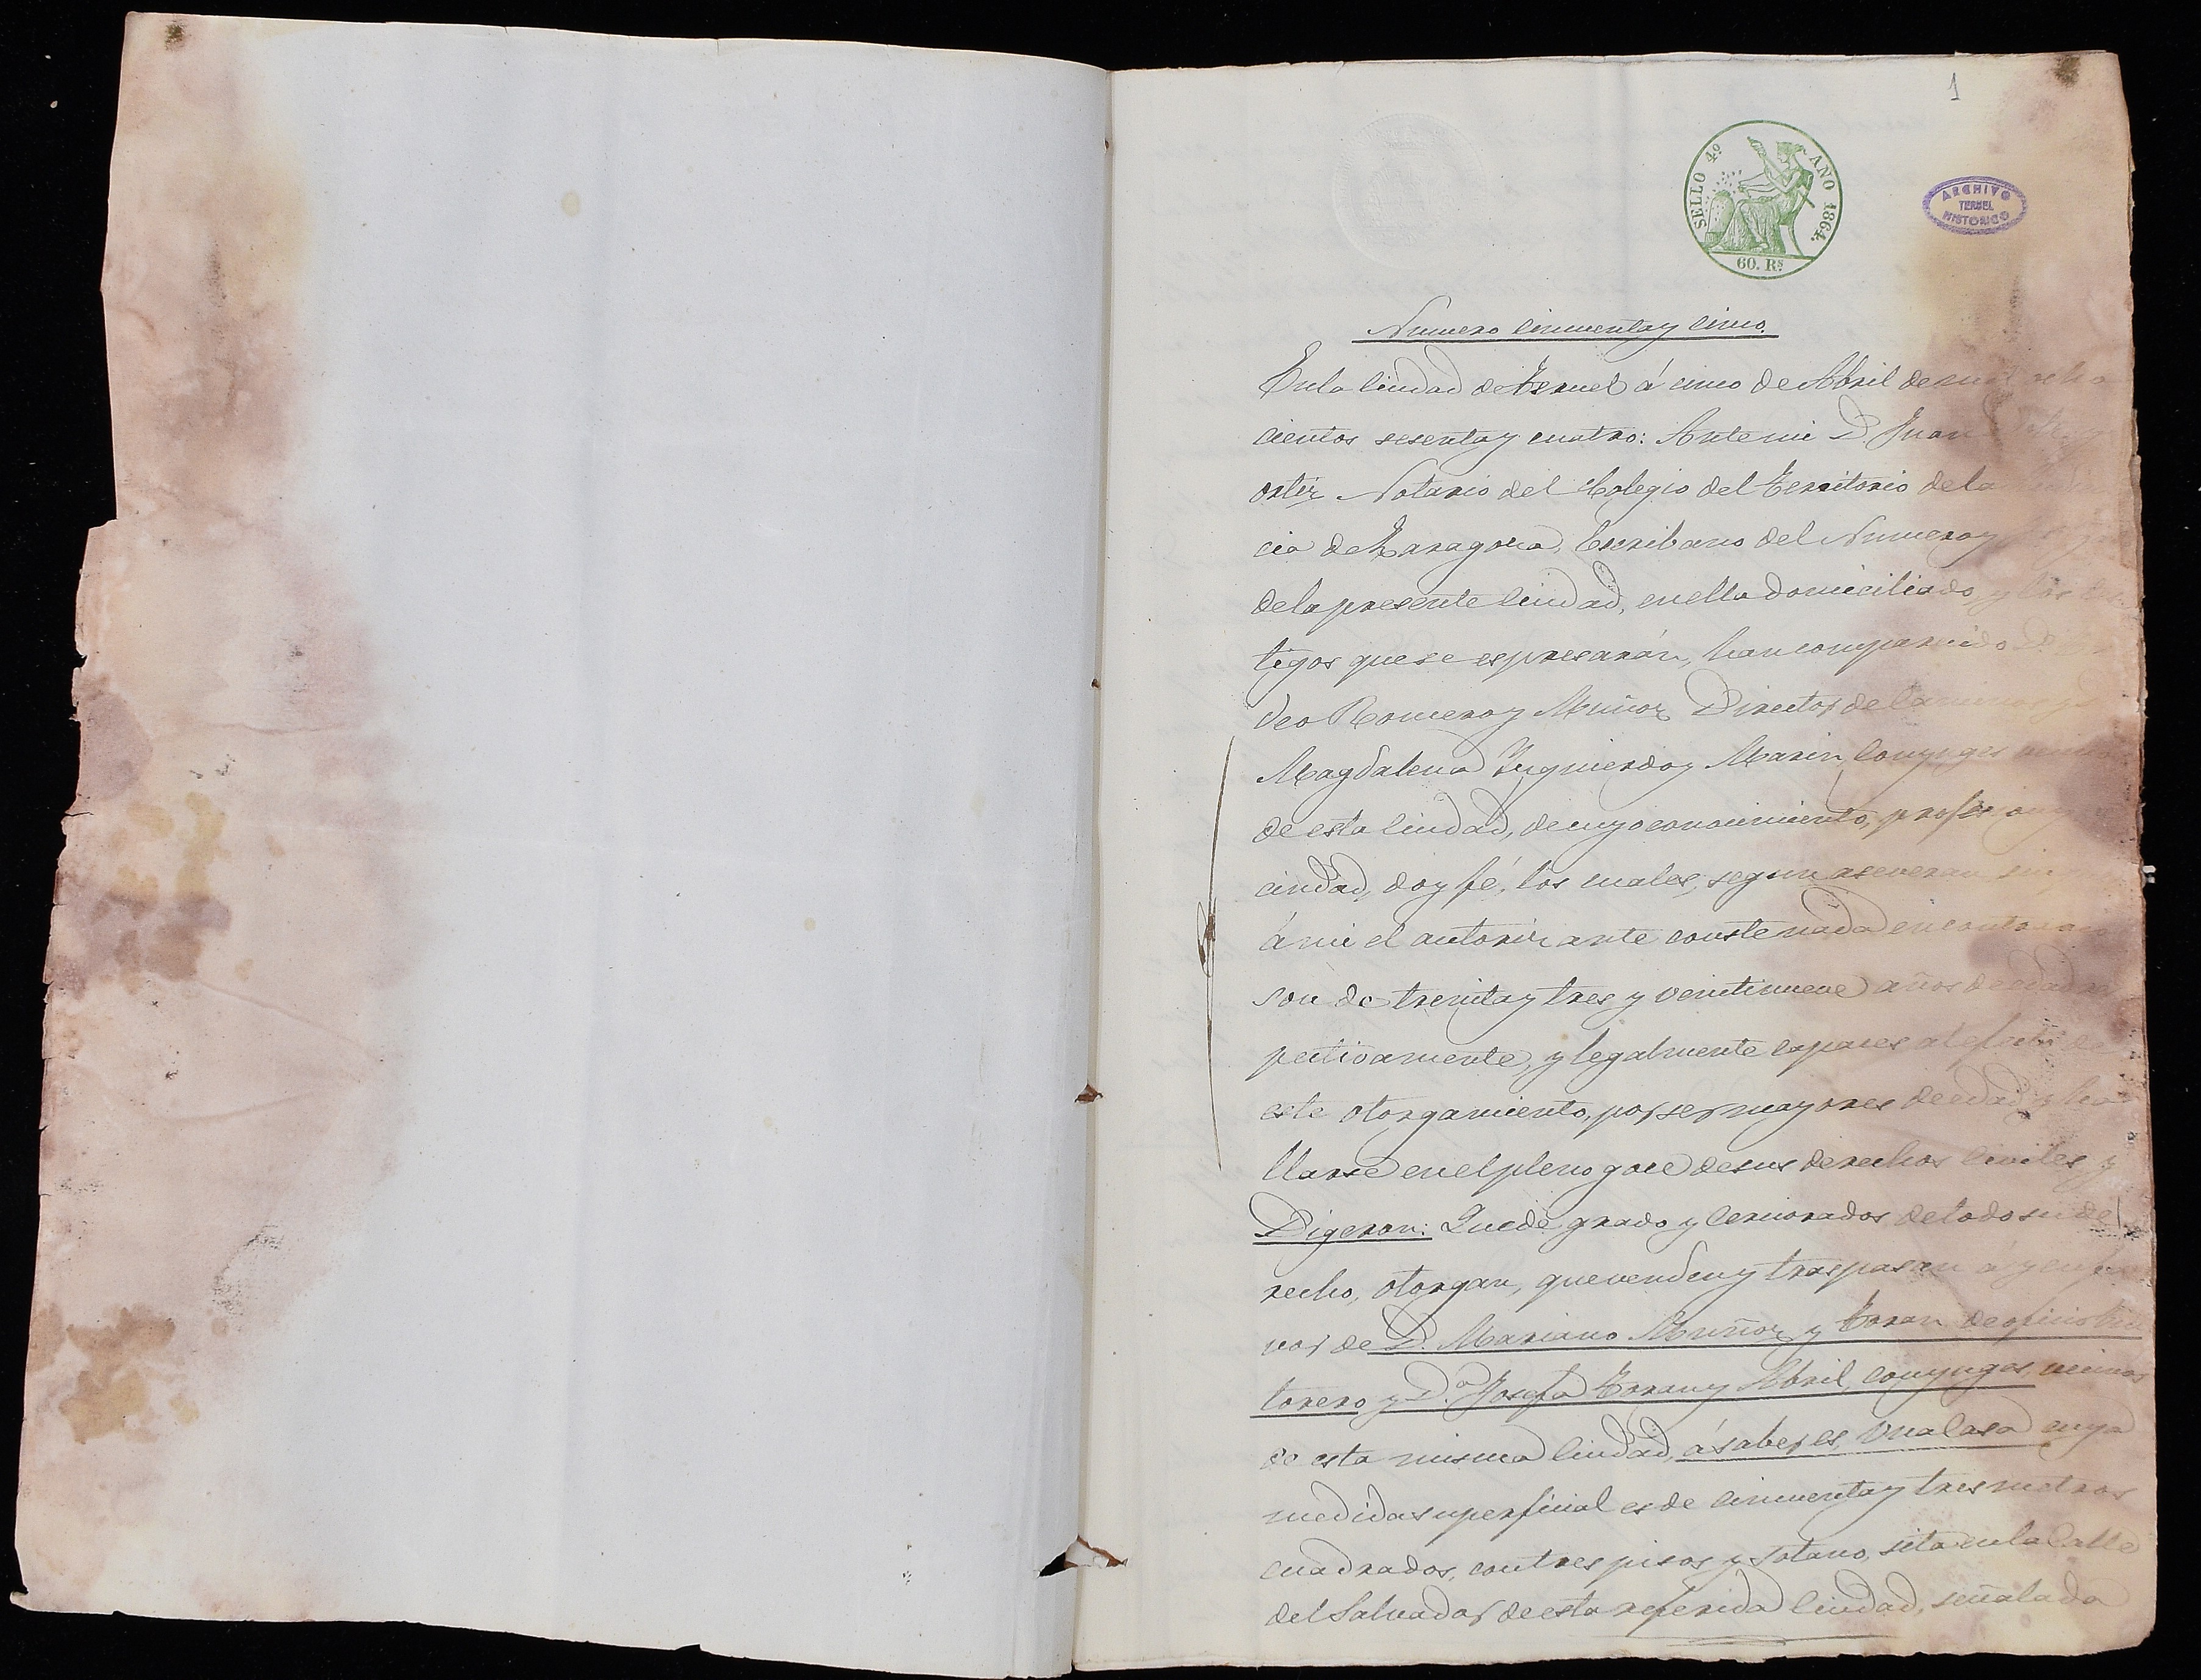 1
SELLO 4º AÑO 1864.
60. Rs
ARCHIVO
TERUEL
HISTORICO
Numero Cincuenta y Cinco.
En la Ciudad de Teruel á cinco de Abril de mil ocho
cientos sesenta y cuatro: Ante mi D. Juan
ortiz Notario del Colegio del Territorio de la
cia de Zaragoza, Escribano del Numero y
de la presente Ciudad, en ella domiciliado, y los tes
tigos que se espresarán, han comparecido D.
deo Romero y Muñoz Director de
Magdalena Yzquierdo y Marin, Conyuges vecinos
de esta Ciudad, de cuyo conocimiento, profesion y
cindad, doy fé, los cuales, segun aseveran sin
á mi el autorizante conste nada en contrario
son de treinta y tres y veintinueve años de edad res
pectivamente, y legalmente capaces al efecto de
este otorgamiento, por ser mayores de edad y ha
llarse en el pleno goce de sus derechos Civiles y
Digeron: Que de grado y Cerciorados de todo su de
recho, otorgan, que venden y traspasan á y en fa
vor de D. Mariano Muñoz y Toran de oficio tin
torero y D.ª Josefa Toran y Abril, conyuges, vecinos
de esta misma Ciudad, á saber es, Una Casa cuya
medida superficial es de Cincuenta y tres metros
cuadrados, con tres pisos y sotano, sita en la Calle
del Salvador de esta referida Ciudad, señalada